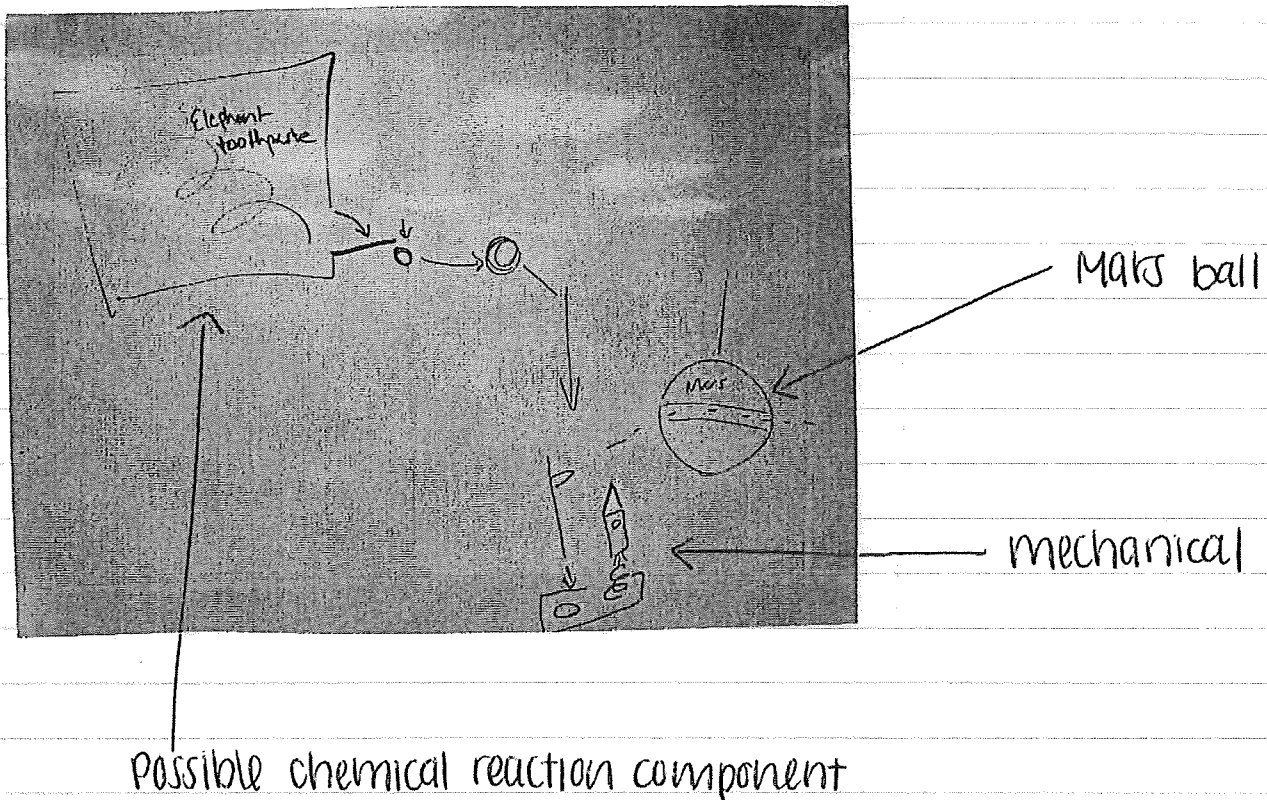 Elephant
toothpaste
Mars ball
Mars
mechanical
Possible chemical reaction component